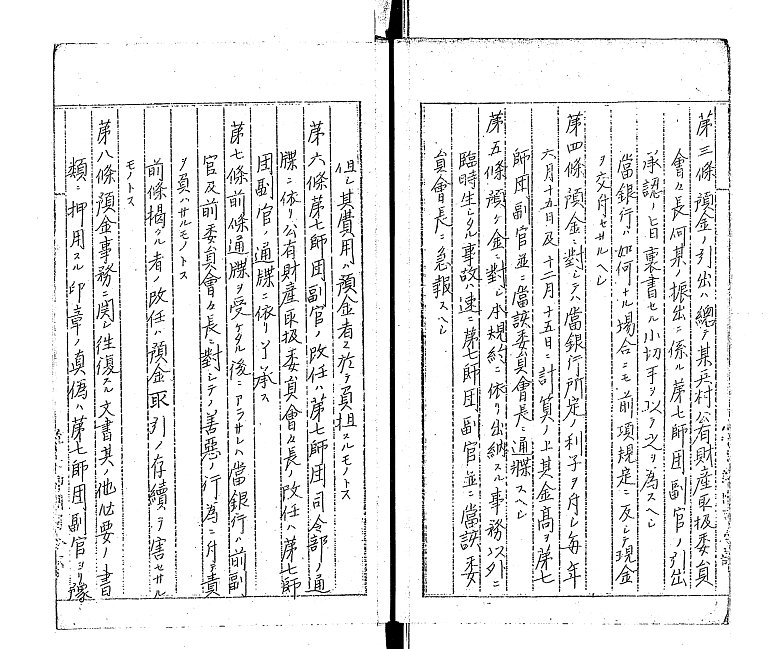 第三條預金ノ引出ハ總テ某兵村公有財產取扱委員
會々長何某ノ振出ニ係ル第七師団副官ノ引出
承認ノ旨裏書セル小切手ヲ以テ之ヲ為スヘシ
當銀行ハ如何ナル場合ニモ前項規定ニ反シテ現金
ヲ交付セサルヘシ
第四條預金ニ對シテハ當銀行所定ノ利子ヲ付シ每年
六月十五日及十二月十五日ニ計算ノ上其金高ヲ第七
師団副官並ニ當該委員會長ニ通牒スヘシ
第五條預ケ金ニ對シ本規約ニ依リ出納スル事務以外ニ
臨時生シタル事故ハ速ニ第七師団副官並ニ當該委
員會長ニ急報スヘシ
但シ其費用ハ預金者ニ於テ負担スルモノトス
第六條第七師団副官ノ改任ハ第七師団司令部ノ通
牒ニ依リ公有財產取扱委員會々長ノ改任ハ第七師
団副官ノ通牒ニ依リ了承ス
第七條前條通牒ヲ受ケタル後ニアラサレハ當銀行ハ前副
官及前委員會々長ニ對シテノ善惡ノ行為ニ付テ責
ヲ負ハサルモノトス
前條揭クル者ノ改任ハ預金取引ノ存續ヲ害セサル
モノトス
第八條預金事務ニ関シ往復スル文書其ノ他必要ノ書
類ニ押用スル印章ノ真偽ハ第七師団副官ヨリ豫